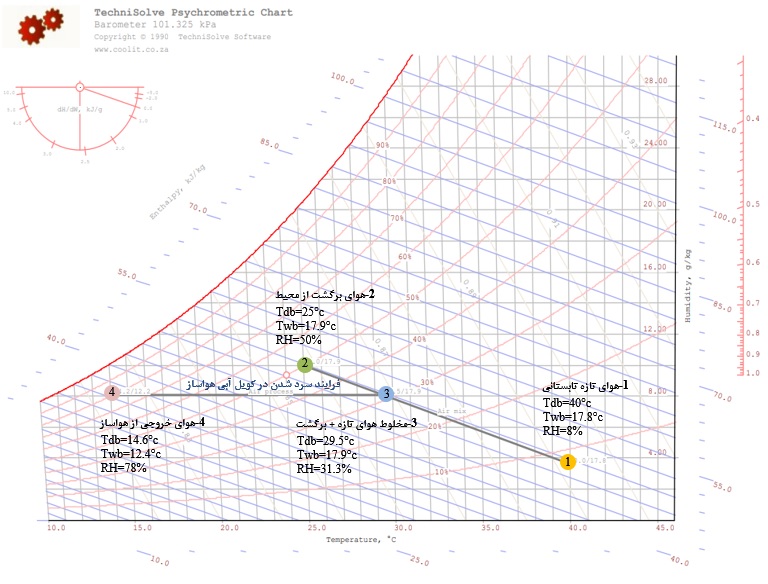 TechniSolve Psychrometric Chart
Barometer 101.325 kPa
Copyright © 1990 TechniSolve Software
www.coolit.co.za
dH/dW, kJ/g
Enthalpy, kJ/kg
100.0
85.0
70.0
55.0
40.0
90%
80%
70%
60%
50%
40%
30%
20%
10%
28.00
24.00
20.00
16.00
12.00
8.00
4.00
Humidity, g/kg
115.0
100.0
85.0
70.0
55.0
40.0
25.0
10.0
0.4
0.5
0.6
0.7
0.8
0.9
1.0
0.93
0.91
2-هوای برگشت از محیط
Tdb=25°c
Twb=17.9°c
RH=50%
2
4
فرایند سرد شدن در کویل آبی هواساز
3
Air mix
1-هوای تازه تابستانی
Tdb=40°c
Twb=17.8°c
RH=8%
1
4-هوای خروجی از هواساز
Tdb=14.6°c
Twb=12.4°c
RH=78%
3-مخلوط هوای تازه + برگشت
Tdb=29.5°c
Twb=17.9°c
RH=31.3%
10.0 15.0 20.0 25.0 30.0 35.0 40.0 45.0
Temperature, °C